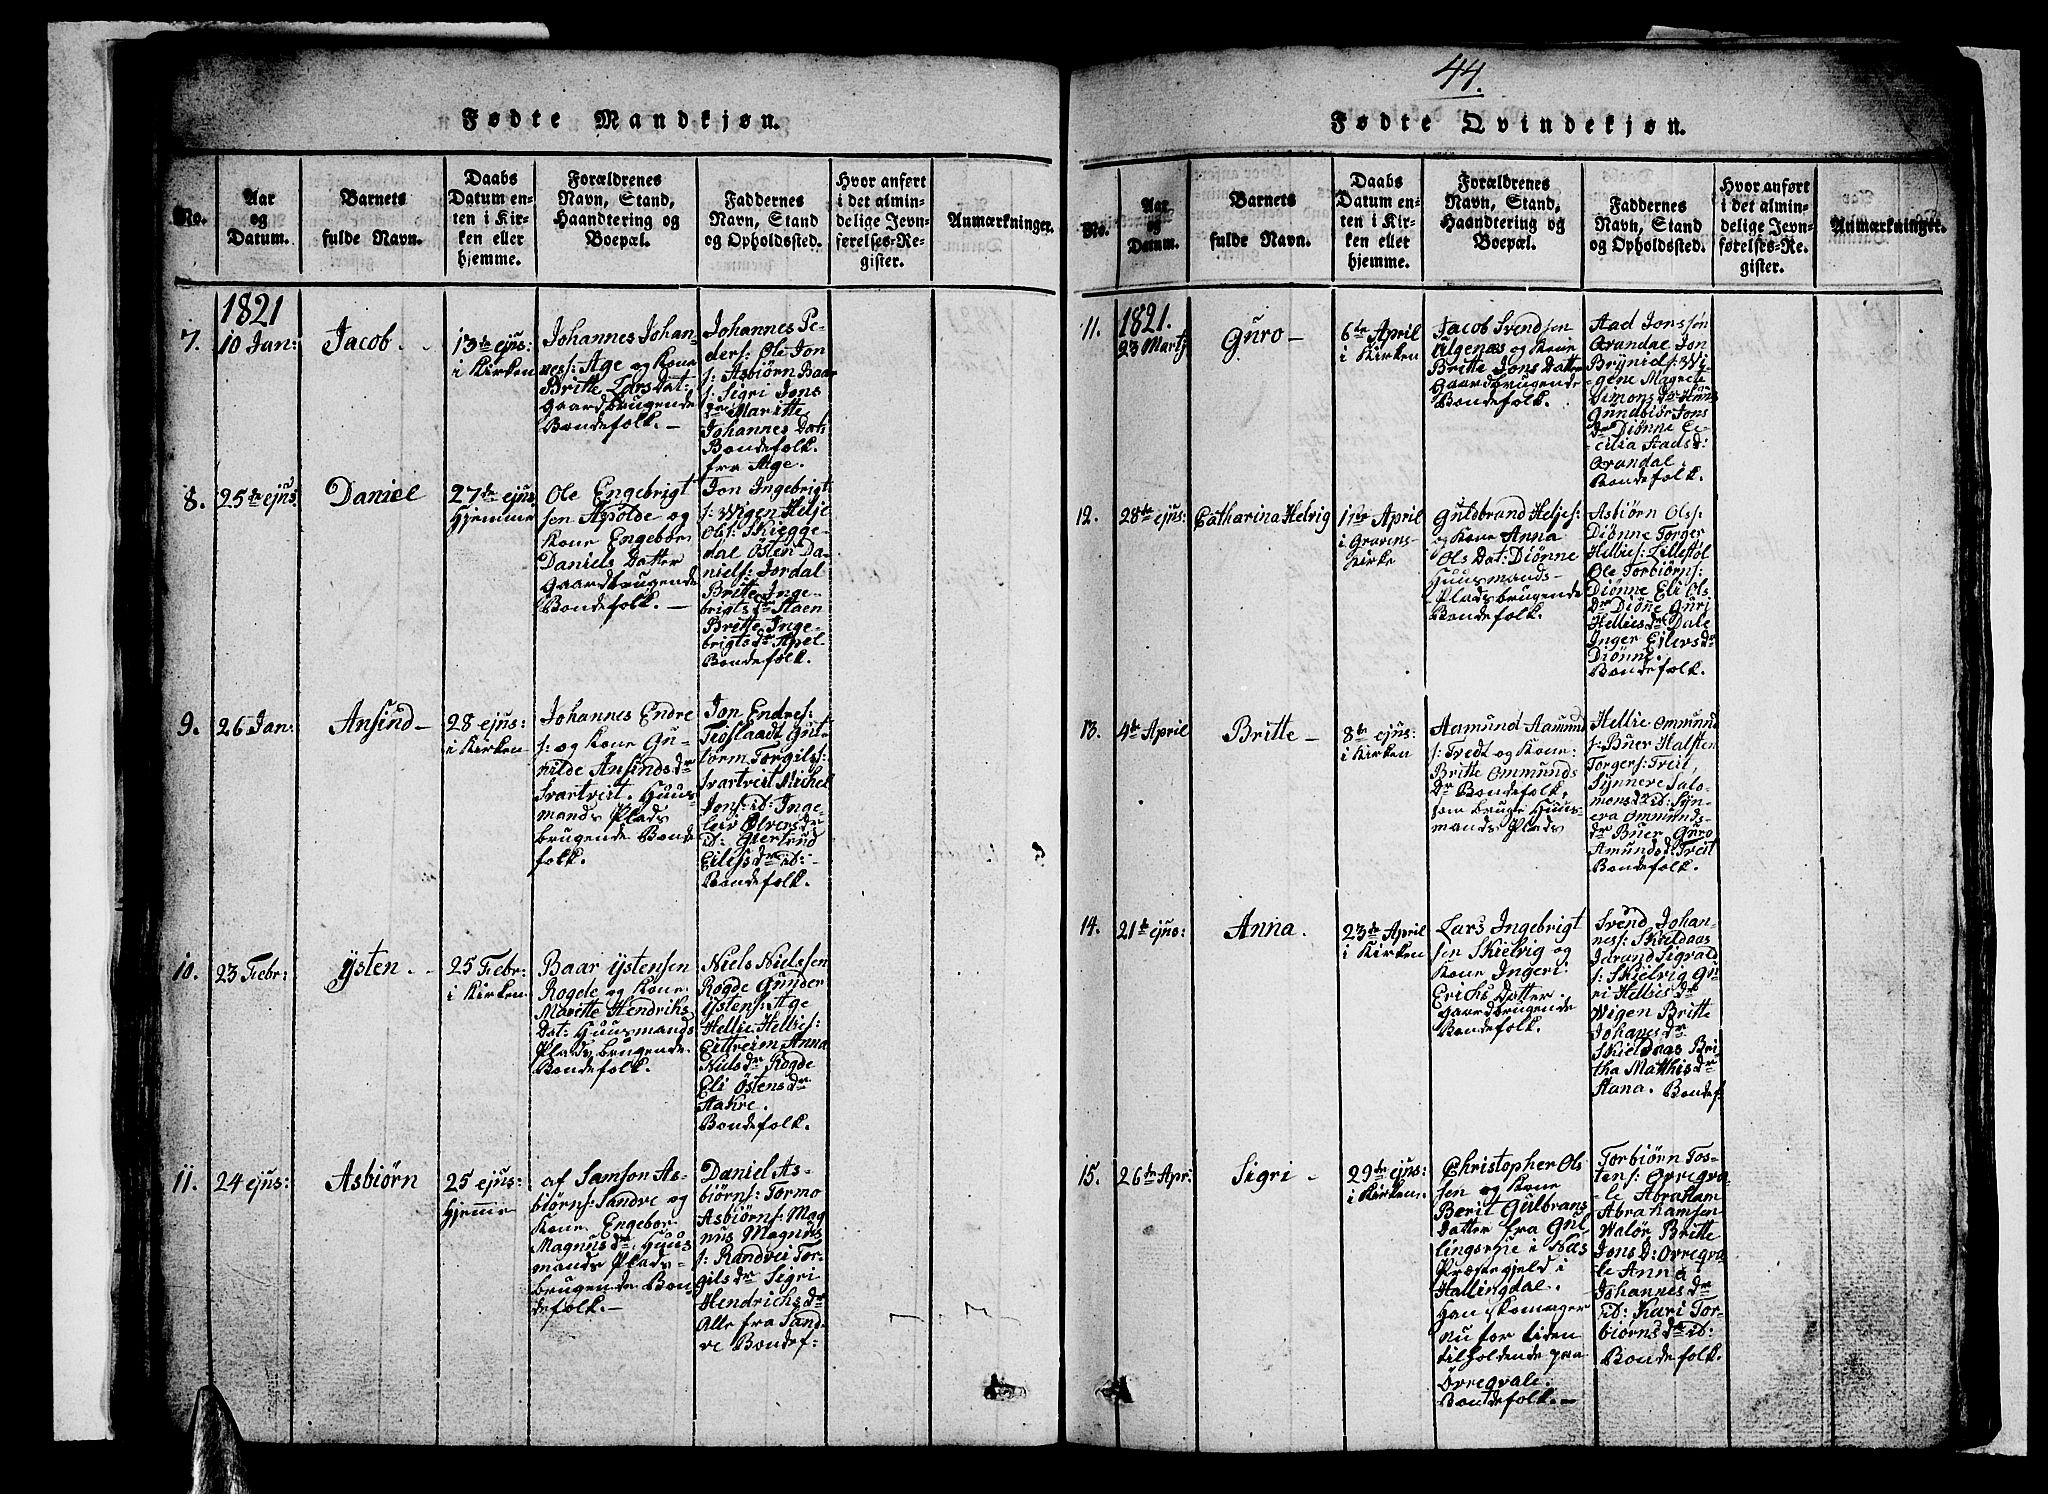 44.
Fødte Mandkjøn.
No.
Aar
og
Datum.
Barnets
fulde Navn.
Daabs
Datum en-
ten i Kir-
ken eller
hjemme.
Forældrenes
Navn, Stand,
Haandtering og
Boepæl.
Faddernes
Navn, Stand
og Opholdssted.
Hvor anført
i det almin-
delige Jevn-
førelses-Re-
gister.
Anmærkninger.
1821
7.
10 Jan:
Jacob.
13de ejus:
i Kirken
Johannes Johan-
nes: Age og Kone
Britte Lars Dat:
Gaardbrugende
Bondefolk. —
Johannes Pe-
ders: Ole Jon
s: Asbiørn Baar
s: Sigri Jons
dr Maritte
Johannes Dat:
Bondefolk
fra Age.
8.
25de ejus
Daniel
27de ejus
Hjemme
Ole Engebrigt
sen Apolde og
Kone Engebor
Daniels Datter
Gaardbrugende
Bondefolk. —
Jon Ingebrigt
s: Wigen Helje
Ols: Skiegge-
dal Østen Da-
niels: Jordal
Britte Inge-
brigts dr Staen
Britte Inge-
brigts dr Apel
Bondefolk.
9.
26 Jan:
Ansind —
28 ejus:
i Kirken
Johannes Endre
s: og Kone Gu-
nilde Ansinds dr
Svartveit. Huus-
mands Plads
brugende Bonde
folk.
Jon Endres:
Tegslaadt Gut-
torm Torgils:
Svartveit Michel
Jons: id: Inge-
leiv Olvers dr
id: Giertrud
Eilifs dr id: -
Bondefolk.
10.
23 Febr:
Ysten.
25 Febr:
i Kirken
Baar Ystensen
Rogde og Kone
Maritte Hendriks
Dat: Huusmands
Plads brugende
Bondefolk.
Niels Nielssen
Rogde Gunder
Ystens: Age
Hellie Hellies:
Eittreim Anna
Niels dr Rogde
Eli Østens dr
Aakre.
Bondefolk.
11.
24 ejus:
Asbiørn
25 ejus:
Hjemme
af Samson As-
biørns: Sandve og
Kone Engebor
Magnus dr. Huus
mands Plads-
brugende Bon-
defolk. —
Daniel As-
biørns: Tormo
Asbiørns: Mag
nus Magnus
s: Randvei Tor-
gils dr Sigri
Hendrichs dr
Alle fra Sand-
ve Bondef:
Fødte Qvindekjøn.
No.
Aar
og
Datum.
Barnets
fulde Navn.
Daabs
Datum en-
ten i Kir-
ken eller
hjemme.
Forældrenes
Navn, Stand,
Haandtering og
Boepæl.
Faddernes
Navn, Stand
og Opholdssted.
Hvor anført
i det almin-
delige Jevn-
førelses-Re-
gister.
Anmærkninger.
11.
1821.
23 Martj
Guro —
6te April
i Kirken
Jacob Svendsen
Algenæs og Kone
Britte Jons Datter
Gaardbrugende
Bondefolk.
Aad Jonssøn
Arandal Jon
Bryniels: Wi-
gene Magrete
Simons dr
Gundbiør Jons
dr Diønne Ce-
cilia Aads d:
Arandal.
Bondefolk.
12.
28de ejus:
Catharina Helvig
1ste April
i Gravens-
kirke
Guldbrand Heljes:
og Kone Anna
Ols Dat: Diønne
Huusmands-
Pladsbrugende
Bondefolk.
Asbiørn Ols:
Diønne Torger
Hellies: Lillestøl
Ole Torbiørns:
Diønne Eli Ols
Dr Diøne Guri
Hellies dr Dale
Inger Eilers dr
Diønne.
Bondefolk.
13.
4de April
Britte —
8de ejus:
i Kirken
Aamund Aamund
s: Tvedt og Kone:
Britte Ommunds
Dr Bondefolk,
som bruge Huus-
mands Plads
Hellie Ommund
s: Buer Halsten
Torgers: Treit,
Synnere Salo-
mons d id: Syn-
era Ommunds-
dr Buer Guro
Amunds d Treit
Bondefolk.
14.
21de ejus:
Anna.
23de April
i Kirken
Lars Ingebrigt
sen Skielvig og
Kone Ingeri
Erichs Datter.
Gaardbrugende
Bondefolk.
Svend Johan-
nes: Skieldaas
Jarand Sigvald
s: Skielvig Gu-
ri Hellies dr
Wigen Britte
Johanes dr
Skieldaas Bri-
tha Matthis dr
Stana. Bondef.
15.
26de Apr:
Sigri —
29de ejus:
i Kirken.
Christopher Ols
sen og Kone
Berit Gulbrans
Datter fra Gul
lingseie i Næs
Præstegjeld i
Hallingdal.
Han Skomager
nu for tiden
tilholdende paa
Orregvale.
Bondefolk. —
Torbiørn Tos-
tens: Orregva-
le Abraham
Abrahamsen
Waløe Britte
Jons D: Orregva-
le Anna
Johannes dr
id: Kari Tor-
biørns dr id:
Bondefolk.